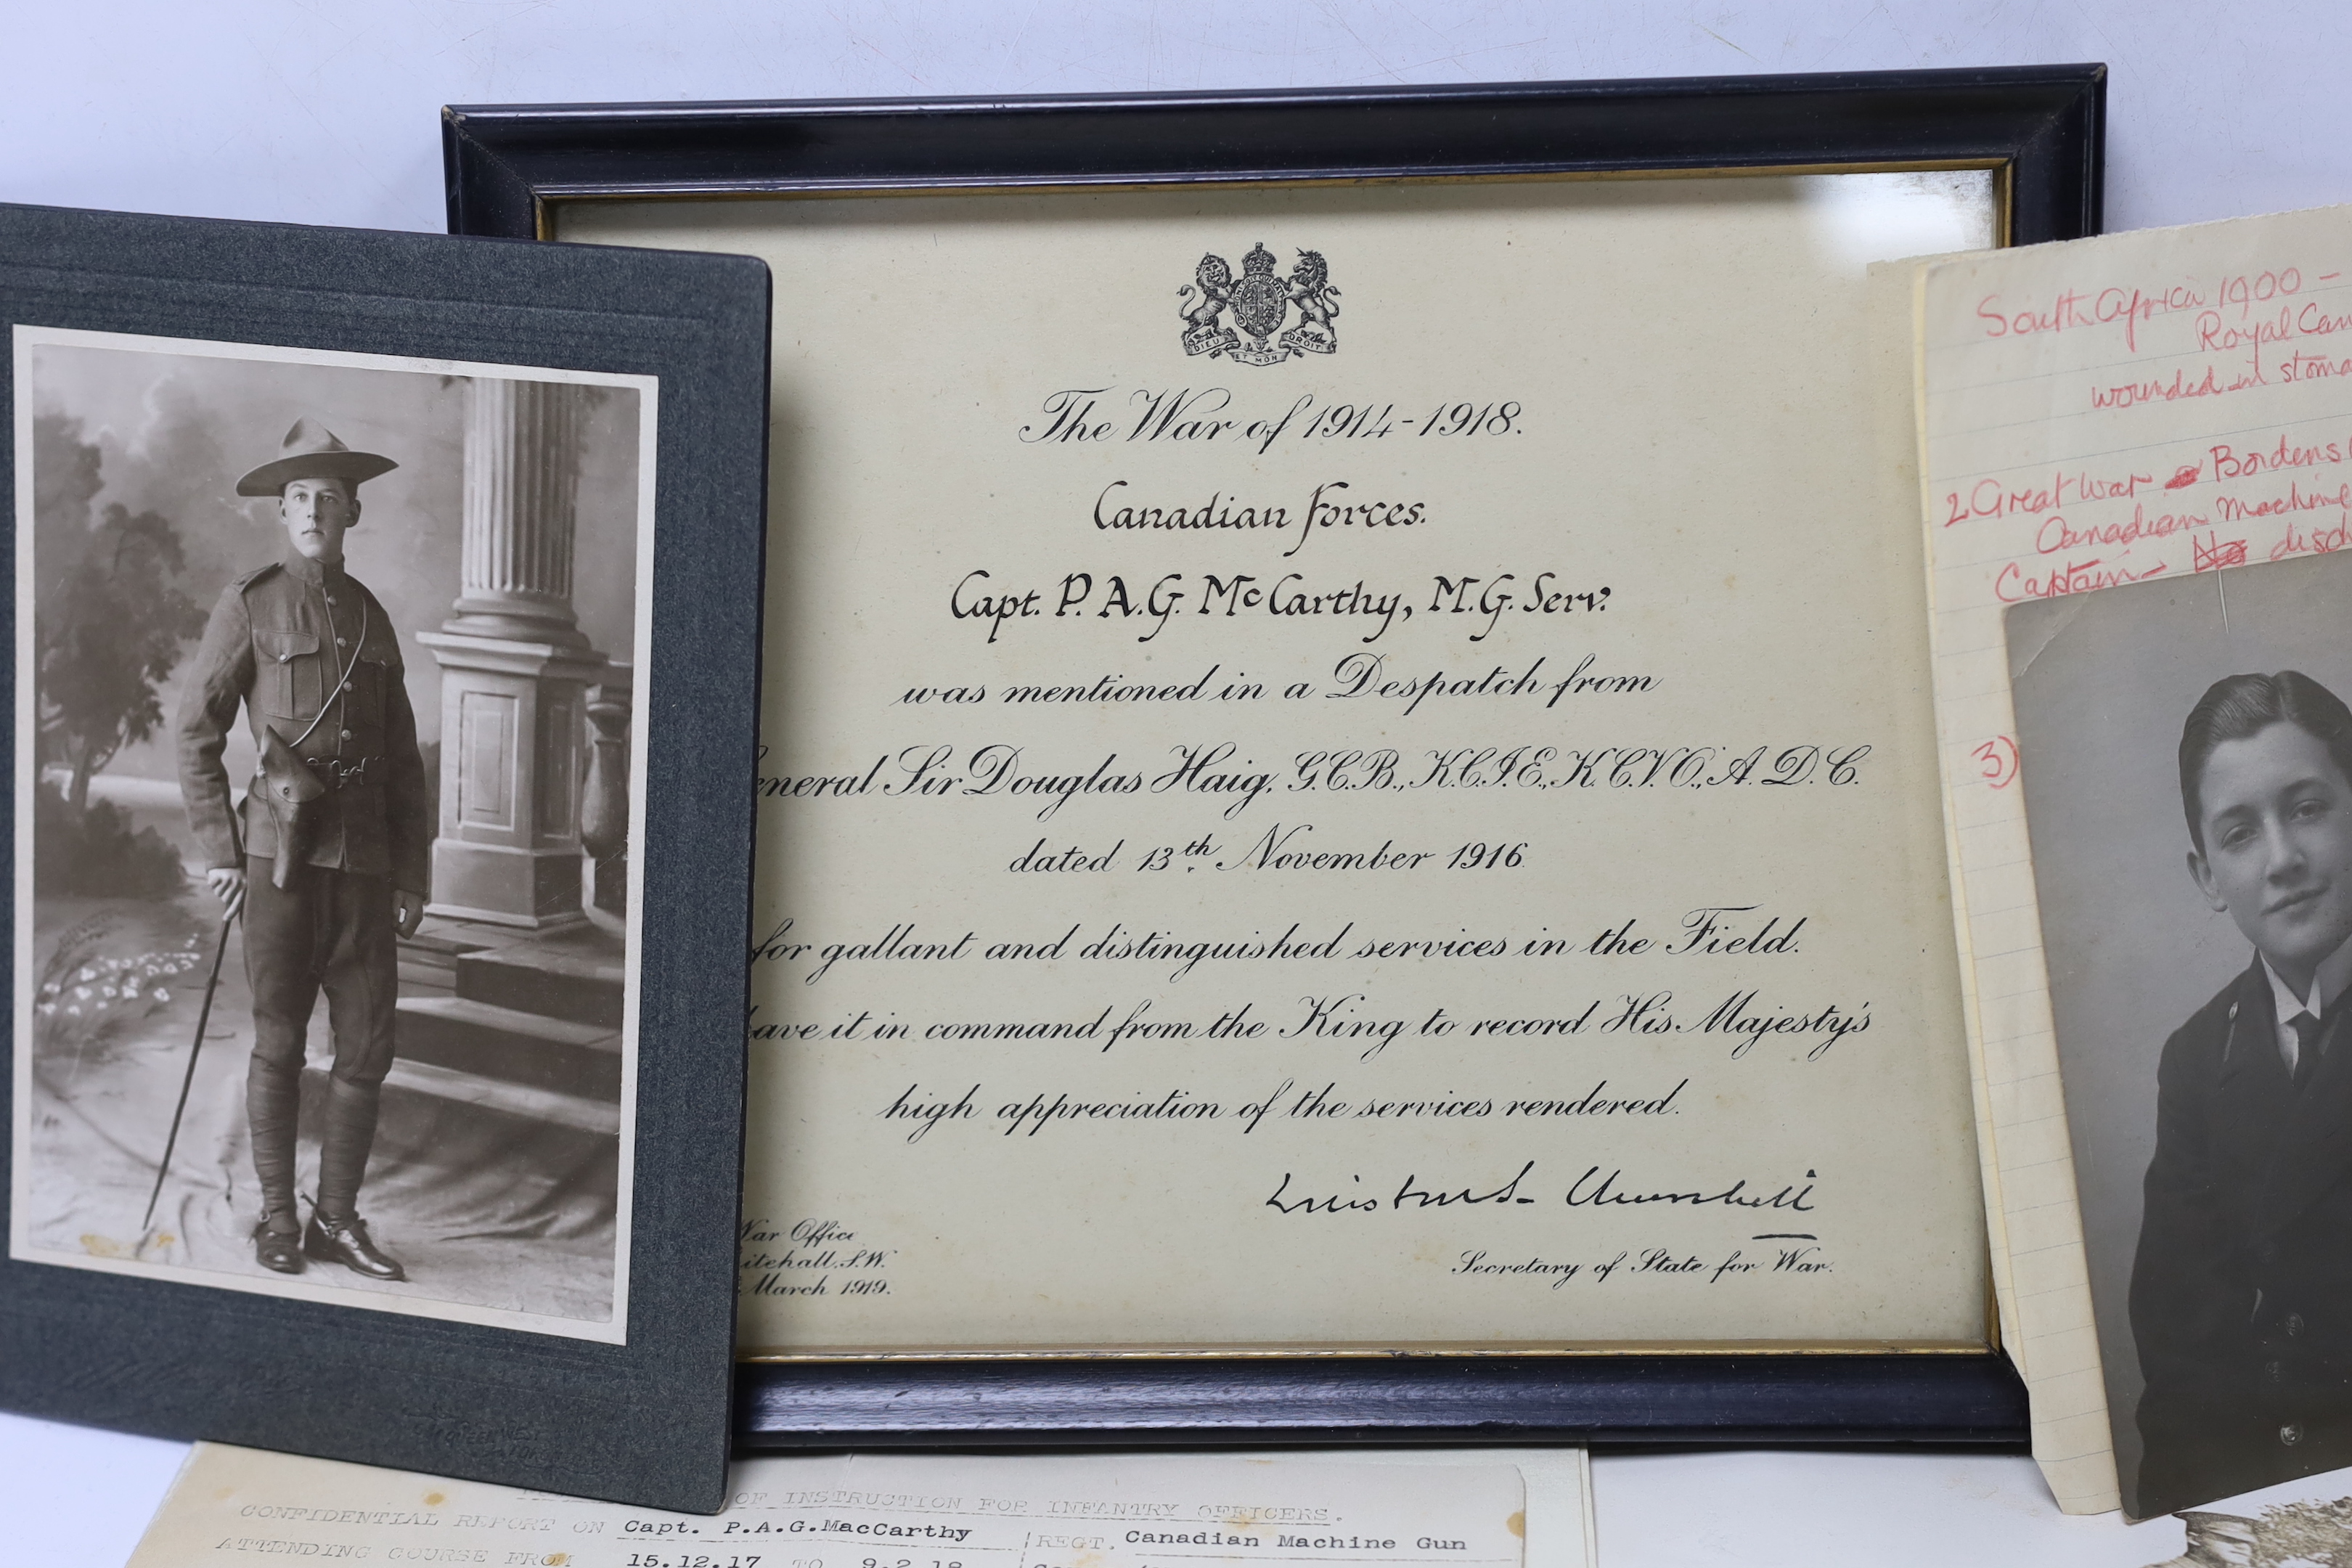 DIEU ET MON DROIT
The War of 1914-1918.
Canadian Forces.
Capt. P. A. G. McCarthy, M. G. Serv.
was mentioned in a Despatch from
eneral Sir Douglas Haig, G.C.B., K.C.I.E., K.C.V.O., A.D.C.
dated 13th November 1916.
for gallant and distinguished services in the Field.
ave it in command from the King to record His Majesty's
high appreciation of the services rendered.
Winston S. Churchill
Secretary of State for War.
War Office
itehall, S.W.
March 1919.
South Africa 1900 -
Royal Can
wounded in stoma
2 Great War Bordens
Canadian Machine
Captain - No disch
3)
QUEEN WEST
OF INSTRUCTION FOR INFANTRY OFFICERS.
CONFIDENTIAL REPORT ON Capt. P.A.G.MacCarthy REGT. Canadian Machine Gun
ATTENDING COURSE FROM 15.12.17 TO 9.2.18